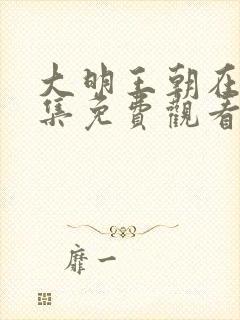 大明王朝在
集免費觀看
靡一